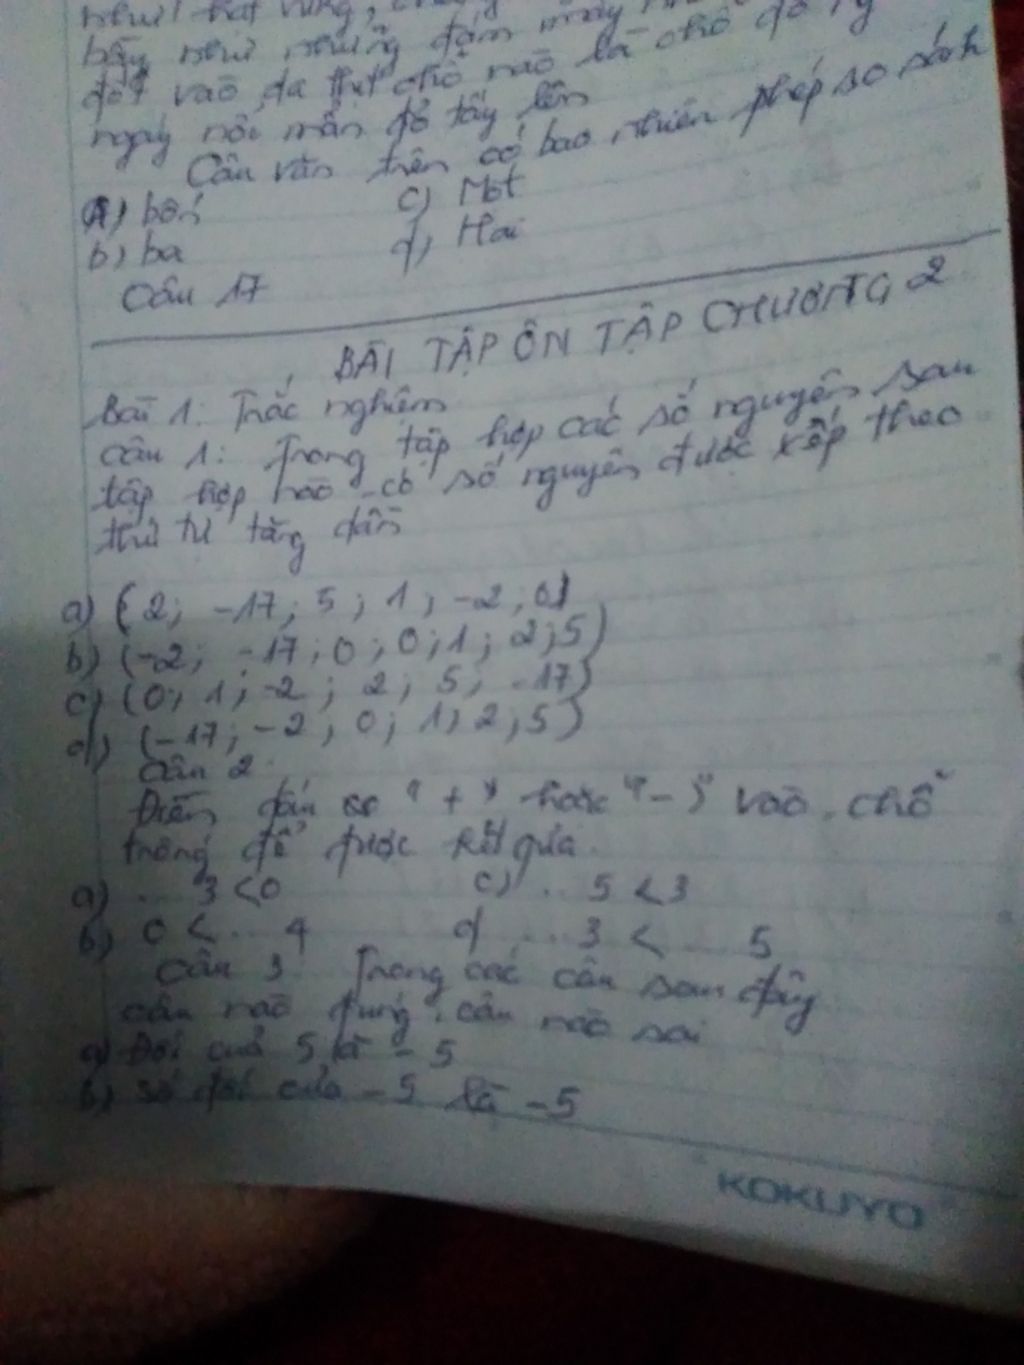 như hạt vừng,
bay như những đám mây
đốt vào da thịt chỗ nào là chỗ đó
ngay nổi mẩn đỏ tấy lên
Câu văn trên có bao nhiên phép so sánh
A) bốn c) Một
b) ba d) Hai
Câu 17
BÀI TẬP ÔN TẬP CHƯƠNG 2
Bài 1: Trắc nghiệm
Câu 1: Trong tập hợp các số nguyên sau
tập hợp nào có số nguyên được xếp theo
thứ tự tăng dần
a) {2; -17; 5; 1; -2; 0}
b) {-2; -17; 0; 0; 1; 2; 5}
c) {0; 1; -2; 2; 5; -17}
d) {-17; -2; 0; 1; 2; 5}
Câu 2
Điền dấu "+" hoặc "-" vào chỗ
trống để được kết quả
a) ... 3 < 0 c) ... 5 < 3
b) 0 < ... 4 d) ... 3 < ... 5
Câu 3 Trong các câu sau đây
câu nào đúng, câu nào sai
a) Đối của 5 là -5
b) số đối của -5 là -5
KOKUYO